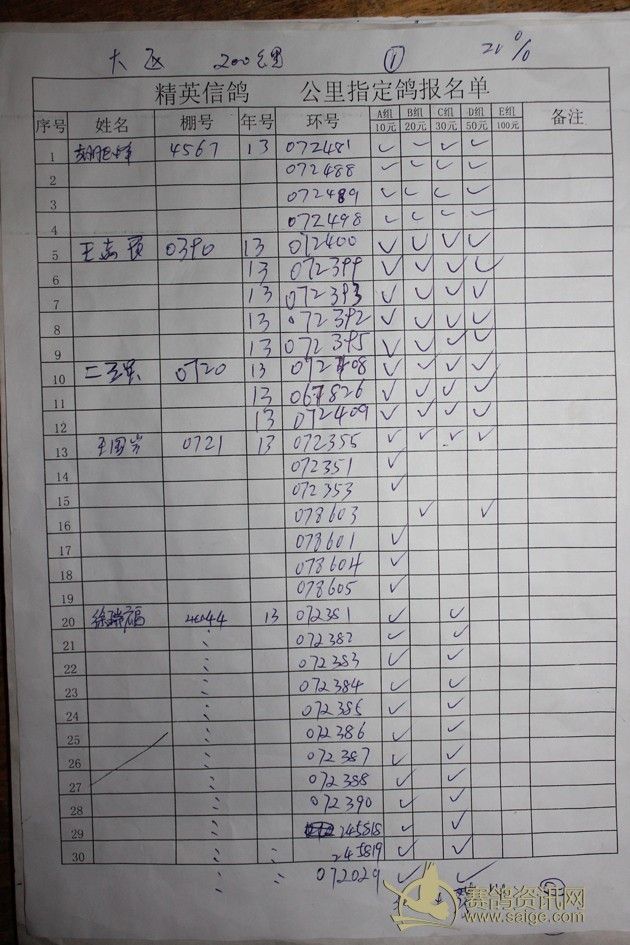 大区 200公里 ① 20%
精英信鸽 公里指定鸽报名单
序号 姓名 棚号 年号 环号 A组 10元 B组 20元 C组 30元 D组 50元 E组 100元 备注
1 4567 13 072481 ✓ ✓ ✓ ✓
2 072488 ✓ ✓ ✓ ✓
3 072489 ✓ ✓ ✓ ✓
4 072498 ✓ ✓ ✓ ✓
5 王志 0390 13 072400 ✓ ✓ ✓ ✓
6 13 072399 ✓ ✓ ✓ ✓
7 13 072393 ✓ ✓ ✓ ✓
8 13 072392 ✓ ✓ ✓ ✓
9 13 072395 ✓ ✓ ✓ ✓
10 0720 13 072408 ✓ ✓ ✓ ✓
11 13 067826 ✓ ✓ ✓ ✓
12 13 072409 ✓ ✓ ✓ ✓
13 王国 0721 13 072355 ✓ ✓ ✓ ✓
14 072351 ✓
15 072353 ✓
16 078603 ✓ ✓
17 078601 ✓
18 078604 ✓
19 078605 ✓
20 徐瑞福 4044 13 072381 ✓ ✓
21 072382 ✓ ✓
22 072383 ✓ ✓
23 072384 ✓ ✓
24 072385 ✓ ✓
25 072386 ✓ ✓
26 072387 ✓ ✓
27 072388 ✓ ✓
28 072390 ✓ ✓
29 245818 ✓ ✓
30 245819 ✓ ✓
072029 ✓ ✓
赛鸽资讯网
www.saige.com